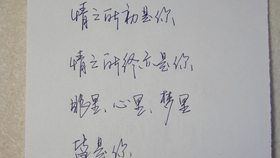 情之所初是你
情之所终亦是你
眼里、心里、梦里
皆是你